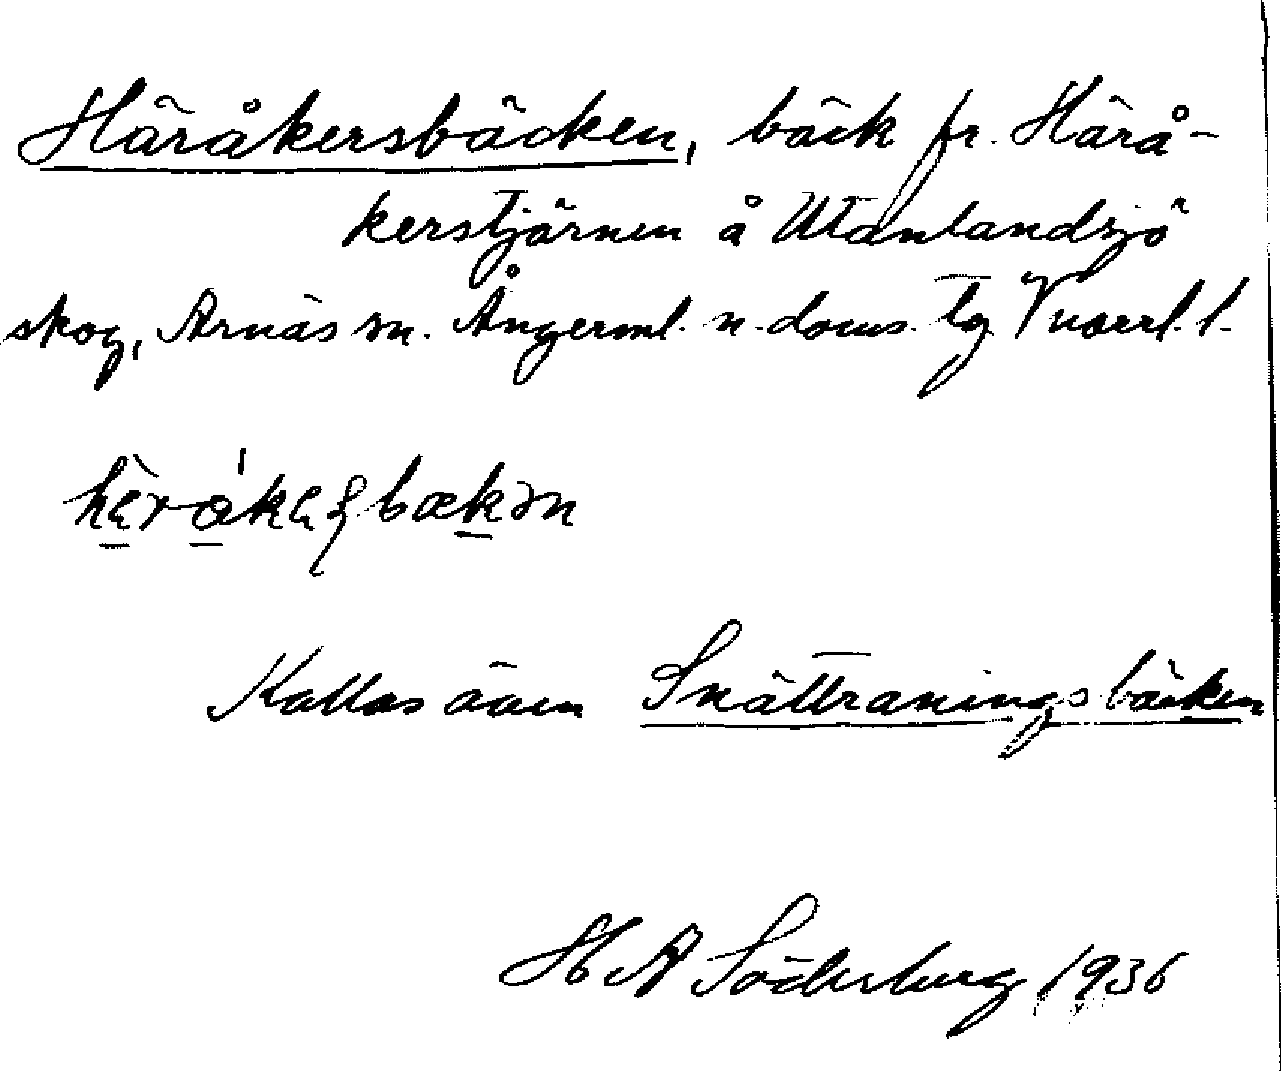 Häråkersbäcken, bäck fr. Härå-
kerstjärnen å Utanlandsjö
skog, Arnäs sn. Ångerml. n. doms. tg V norrl. l.
Kallas även Snättraningsbäcken
H A Söderberg 1936